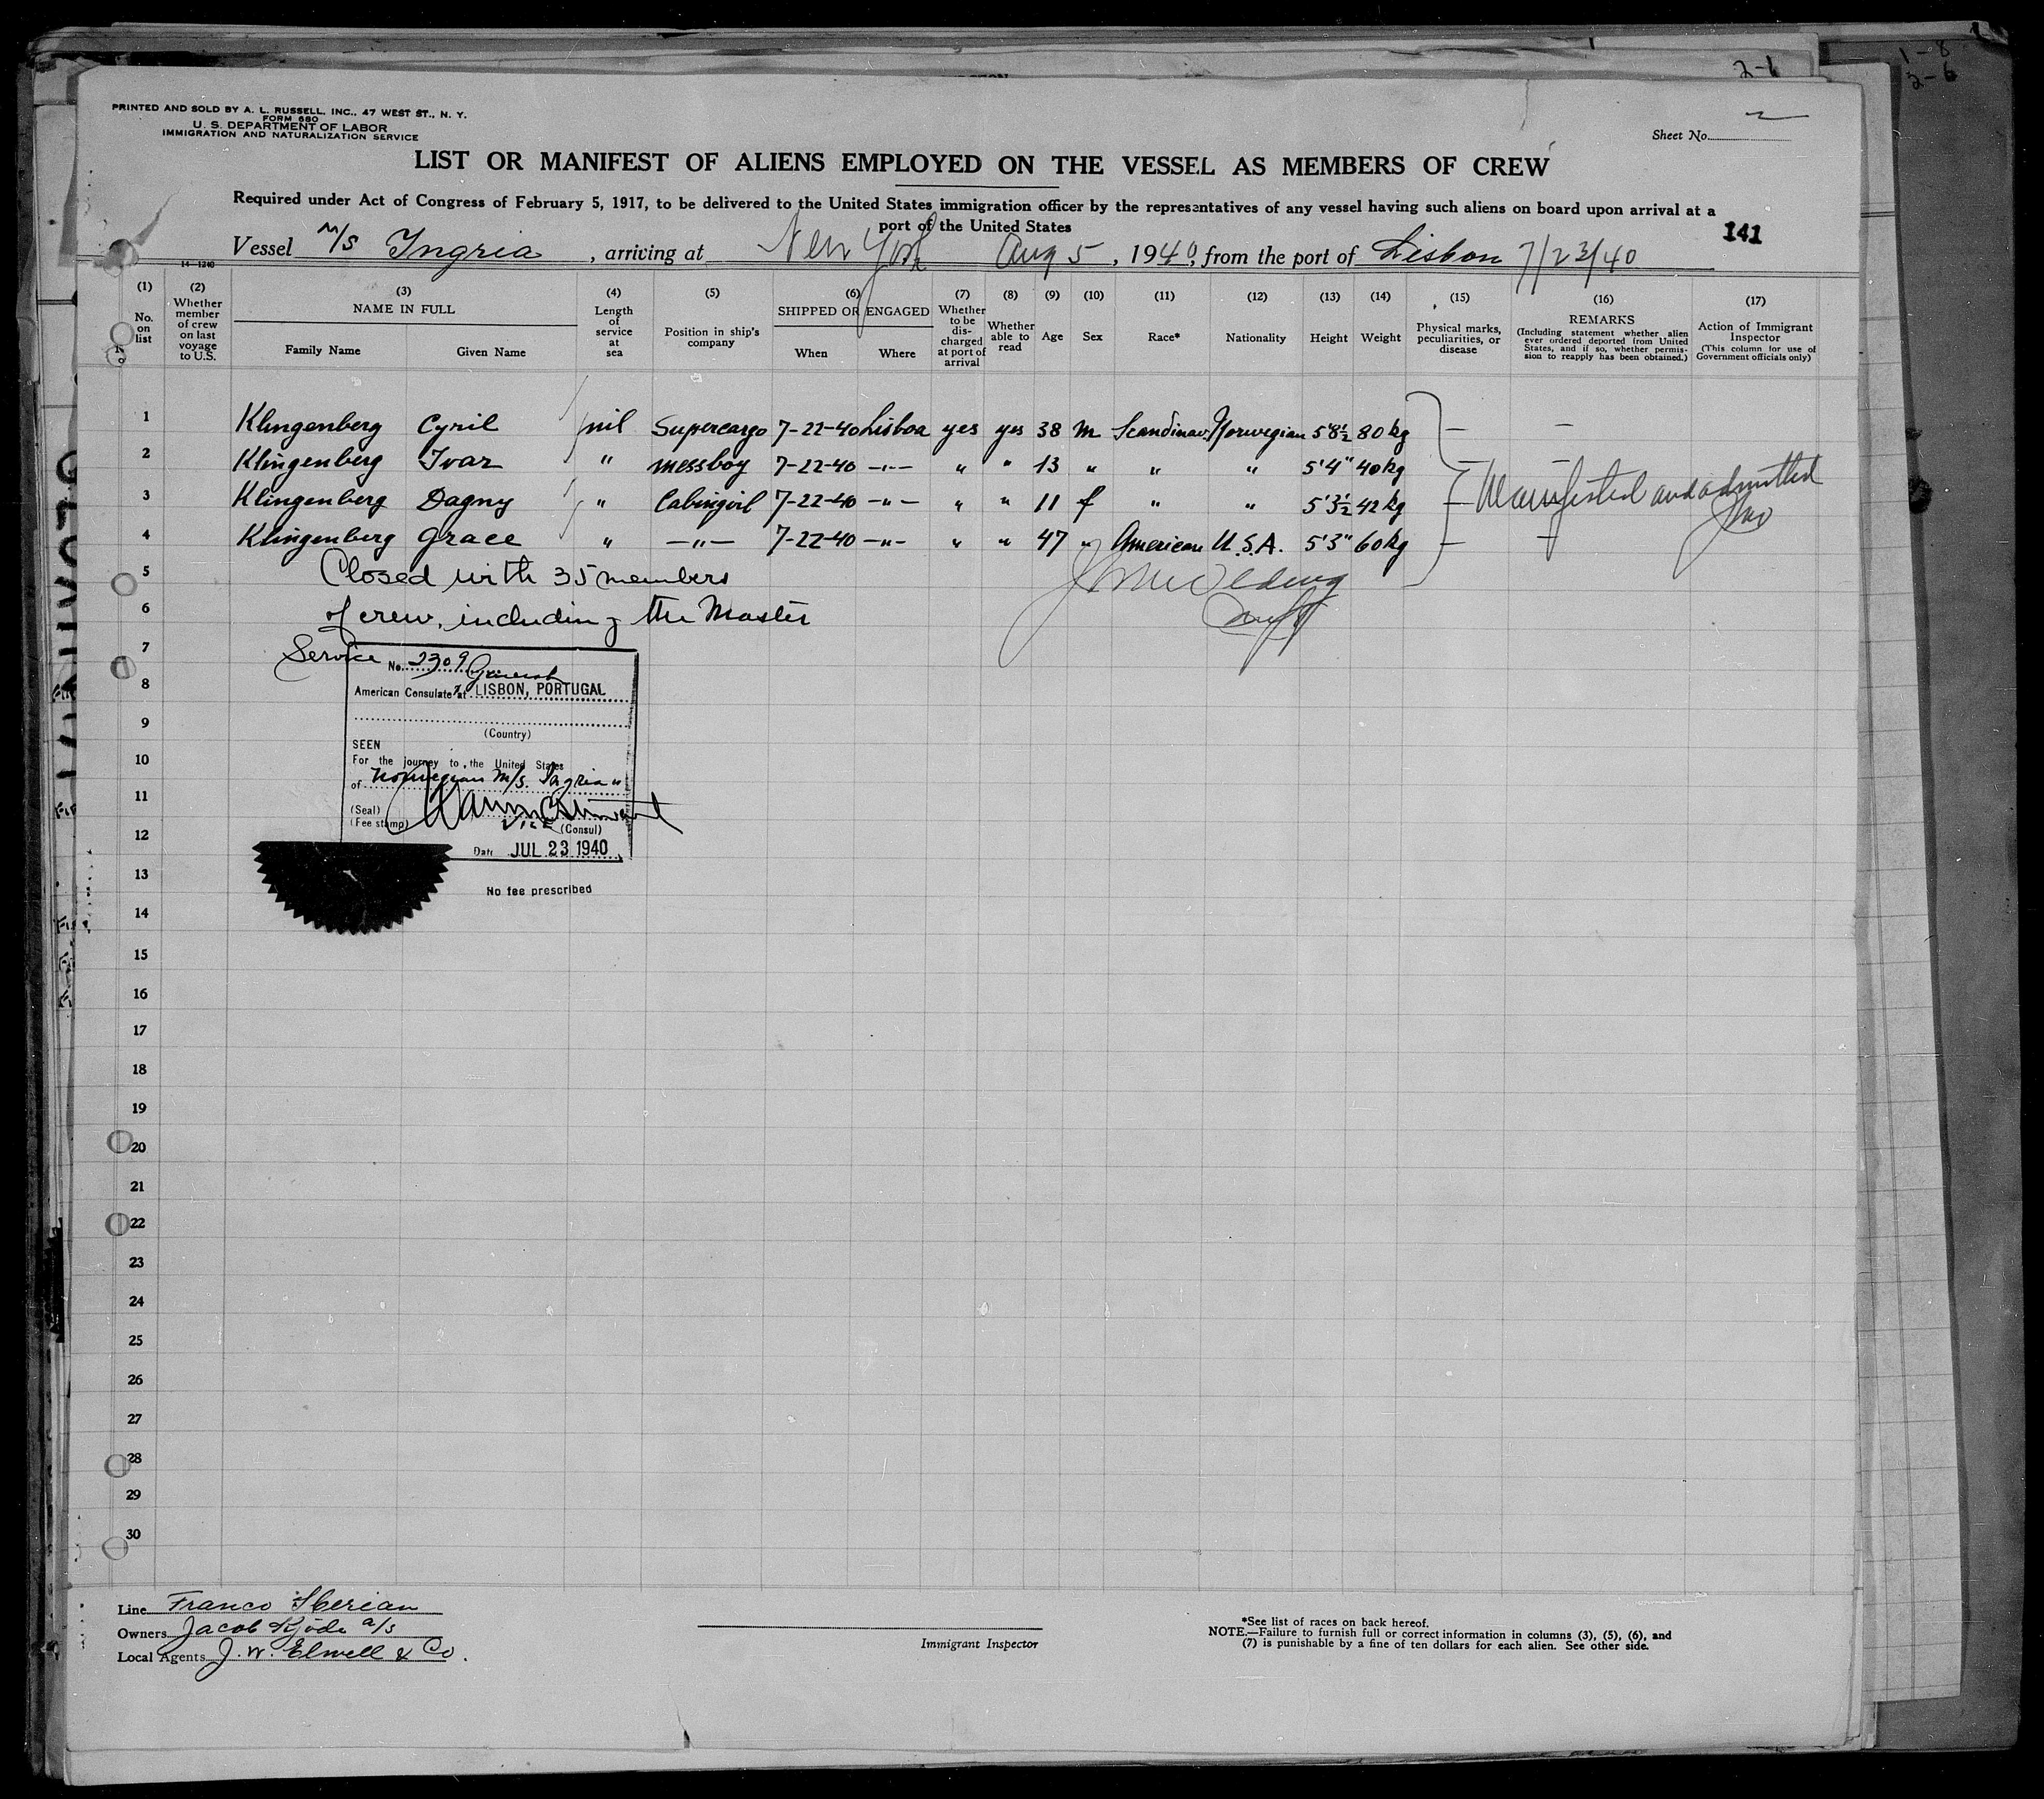 1-8
2-6
2-6
PRINTED AND SOLD BY A. L. RUSSELL, INC., 47 WEST ST., N. Y.
FORM 680
U. S. DEPARTMENT OF LABOR
IMMIGRATION AND NATURALIZATION SERVICE
Sheet No. 2
LIST OR MANIFEST OF ALIENS EMPLOYED ON THE VESSEL AS MEMBERS OF CREW
Required under Act of Congress of February 5, 1917, to be delivered to the United States immigration officer by the representatives of any vessel having such aliens on board upon arrival at a
port of the United States
141
Vessel M/S Ingria, arriving at New York Aug 5, 1940, from the port of Lisbon 7/23/40
14-1240
(1) No. on list
(2) Whether member of crew on last voyage to U.S.
(3) NAME IN FULL
Family Name Given Name
(4) Length of service at sea
(5) Position in ship's company
(6) SHIPPED OR ENGAGED
When Where
(7) Whether to be discharged at port of arrival
(8) Whether able to read
(9) Age
(10) Sex
(11) Race*
(12) Nationality
(13) Height
(14) Weight
(15) Physical marks, peculiarities, or disease
(16) REMARKS
(Including statement whether alien ever ordered deported from United States, and if so, whether permission to reapply has been obtained.)
(17) Action of Immigrant Inspector
(This column for use of Government officials only)
1 Klingenberg Cyril nil Supercargo 7-22-40 Lisboa yes yes 38 m Scandinav. Norwegian 5'8½ 80kg — —
2 Klingenberg Ivar " messboy 7-22-40 —"— " " 13 " " " 5'4" 40kg — —
3 Klingenberg Dagny " Cabingirl 7-22-40 —"— " " 11 f " " 5'3½ 42kg — Manifested and admitted
4 Klingenberg Grace " —"— 7-22-40 —"— " " 47 " American U.S.A. 5'3" 60kg — —
5 Closed with 35 members
6 of crew, including the Master
7
Service No. 2309
8
American Consulate at LISBON, PORTUGAL
9
(Country)
SEEN
10
For the journey to the United States
of Norwegian M/s. Ingria "
11
(Seal)
(Fee stamp)
Vice (Consul)
12
Date JUL 23 1940
13
No fee prescribed
14
15
16
17
18
19
20
21
22
23
24
25
26
27
28
29
30
Line Franco Iberian
Owners Jacob Kjöde a/s
Local Agents J. W. Elwell & Co.
Immigrant Inspector
*See list of races on back hereof.
NOTE.—Failure to furnish full or correct information in columns (3), (5), (6), and
(7) is punishable by a fine of ten dollars for each alien. See other side.